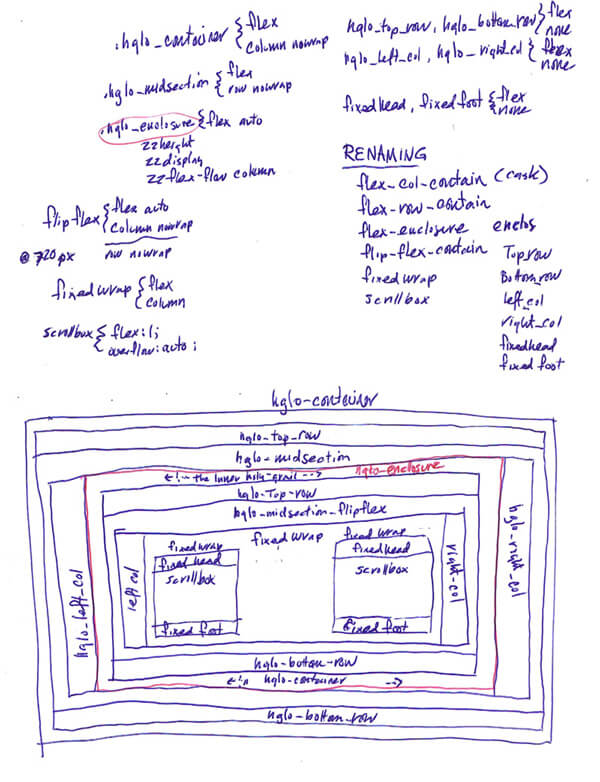 .hglo_container { flex
column nowrap
.hglo_midsection { flex
row nowrap
.hglo_enclosure { flex auto
zzheight
zzdisplay
zz-flex-flow column
flipflex { flex auto
column nowrap
@ 720px row nowrap
fixedwrap { flex
column
scrollbox { flex:1;
overflow:auto;
hglo_top_row, hglo_bottom_row } flex
none
hglo_left_col, hglo_right_col { flex
none
fixedhead, fixedfoot { flex
none
RENAMING
flex_col_contain (cask)
flex_row_contain
flex_enclosure enclos
flip_flex_contain Top_row
fixedwrap Bottom_row
scrollbox left_col
right_col
fixedhead
fixed foot
hglo-container
hglo_top_row
hglo_midsection
<!-- the inner holy-grail --> hglo-enclosure
hglo-Top-row
hglo-midsection_flipflex
fixedwrap fixedwrap fixedwrap
fixed head fixedhead
scrollbox scrollbox
hglo_left_col left col right_col hglo_right_col
fixed foot fixed foot
hglo-bottom-row
hglo-container -->
hglo_bottom_row